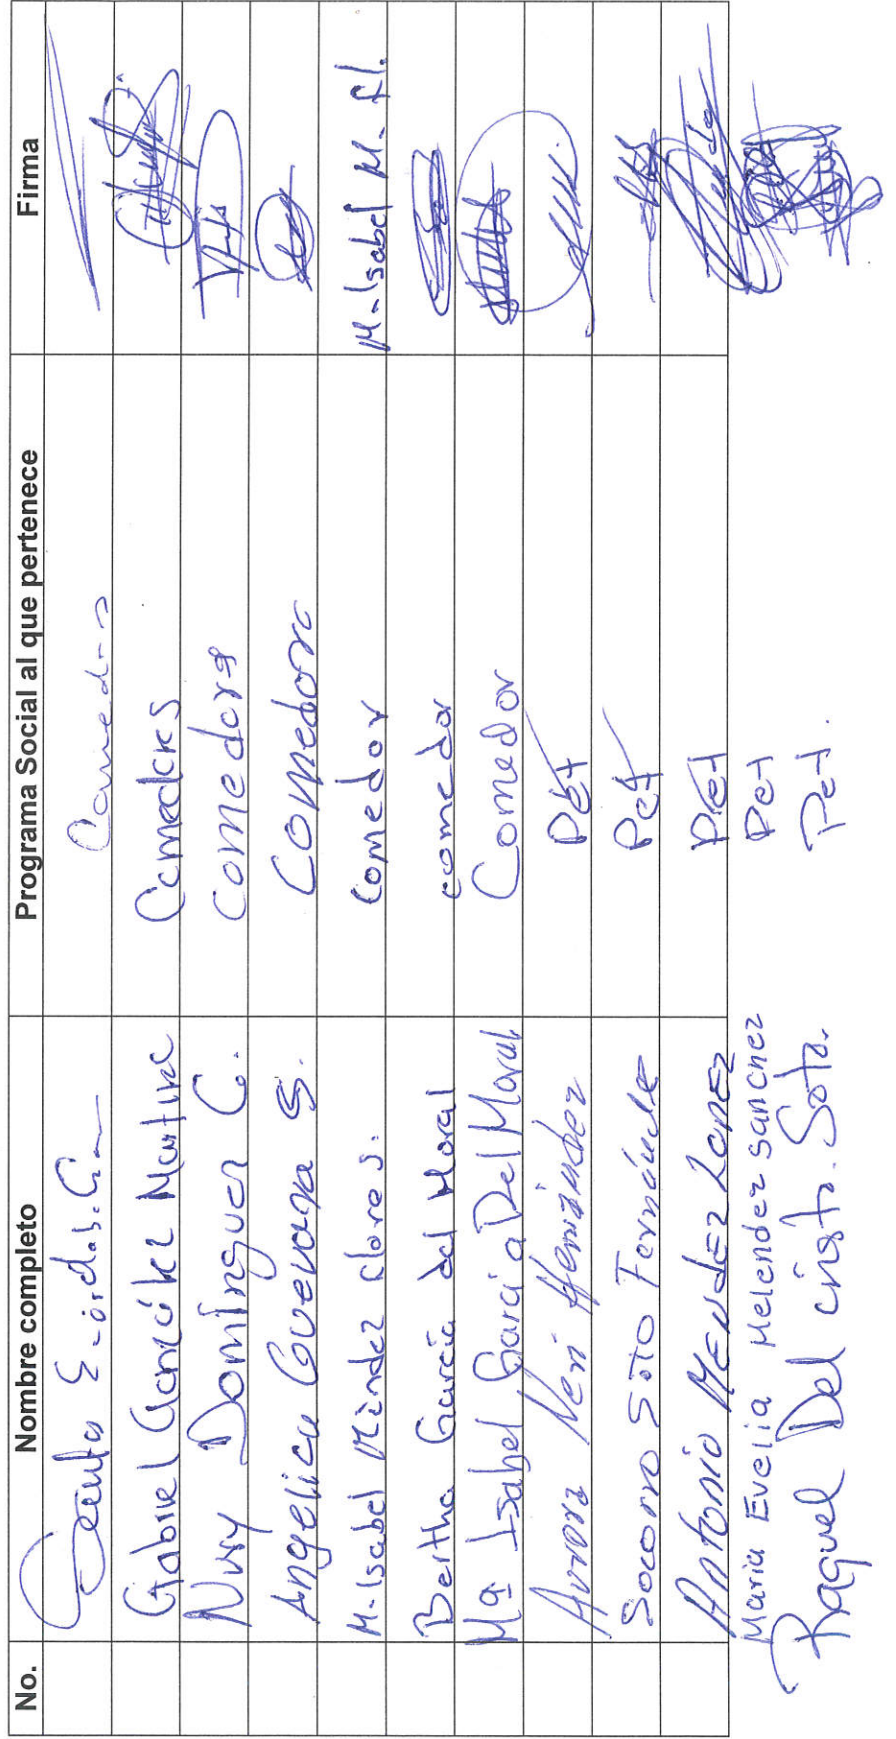 No. Nombre completo Programa Social al que pertenece Firma
Comedor
Gabriel González Martínez Comedores
Nury Domínguez C. Comedors
Angelica Guevara S. Comedor
M-Isabel Méndez flores. Comedor M-Isabel M- fl.
Bertha García del Moral comedor
Mª Isabel García Del Moral Comedor
Aurora Neri Hernández Pet
Socorro Soto Fernánde Pet
Antonio MENdEZ LOPEZ Pet
Maria Evelia Melendez sanchez Pet
Raquel Del cristo. Soto. Pet.